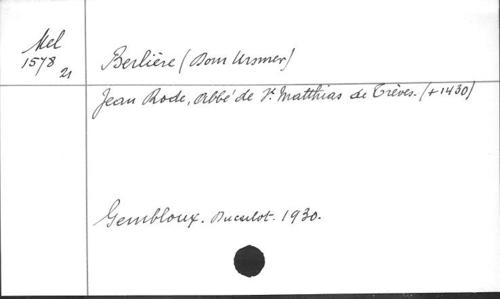 Mel
1578
21
Berlière (Dom Ursmer)
Jean Rode, Abbé de St Matthias de Trèves. (+1430)
Gembloux. Duculot. 1930.